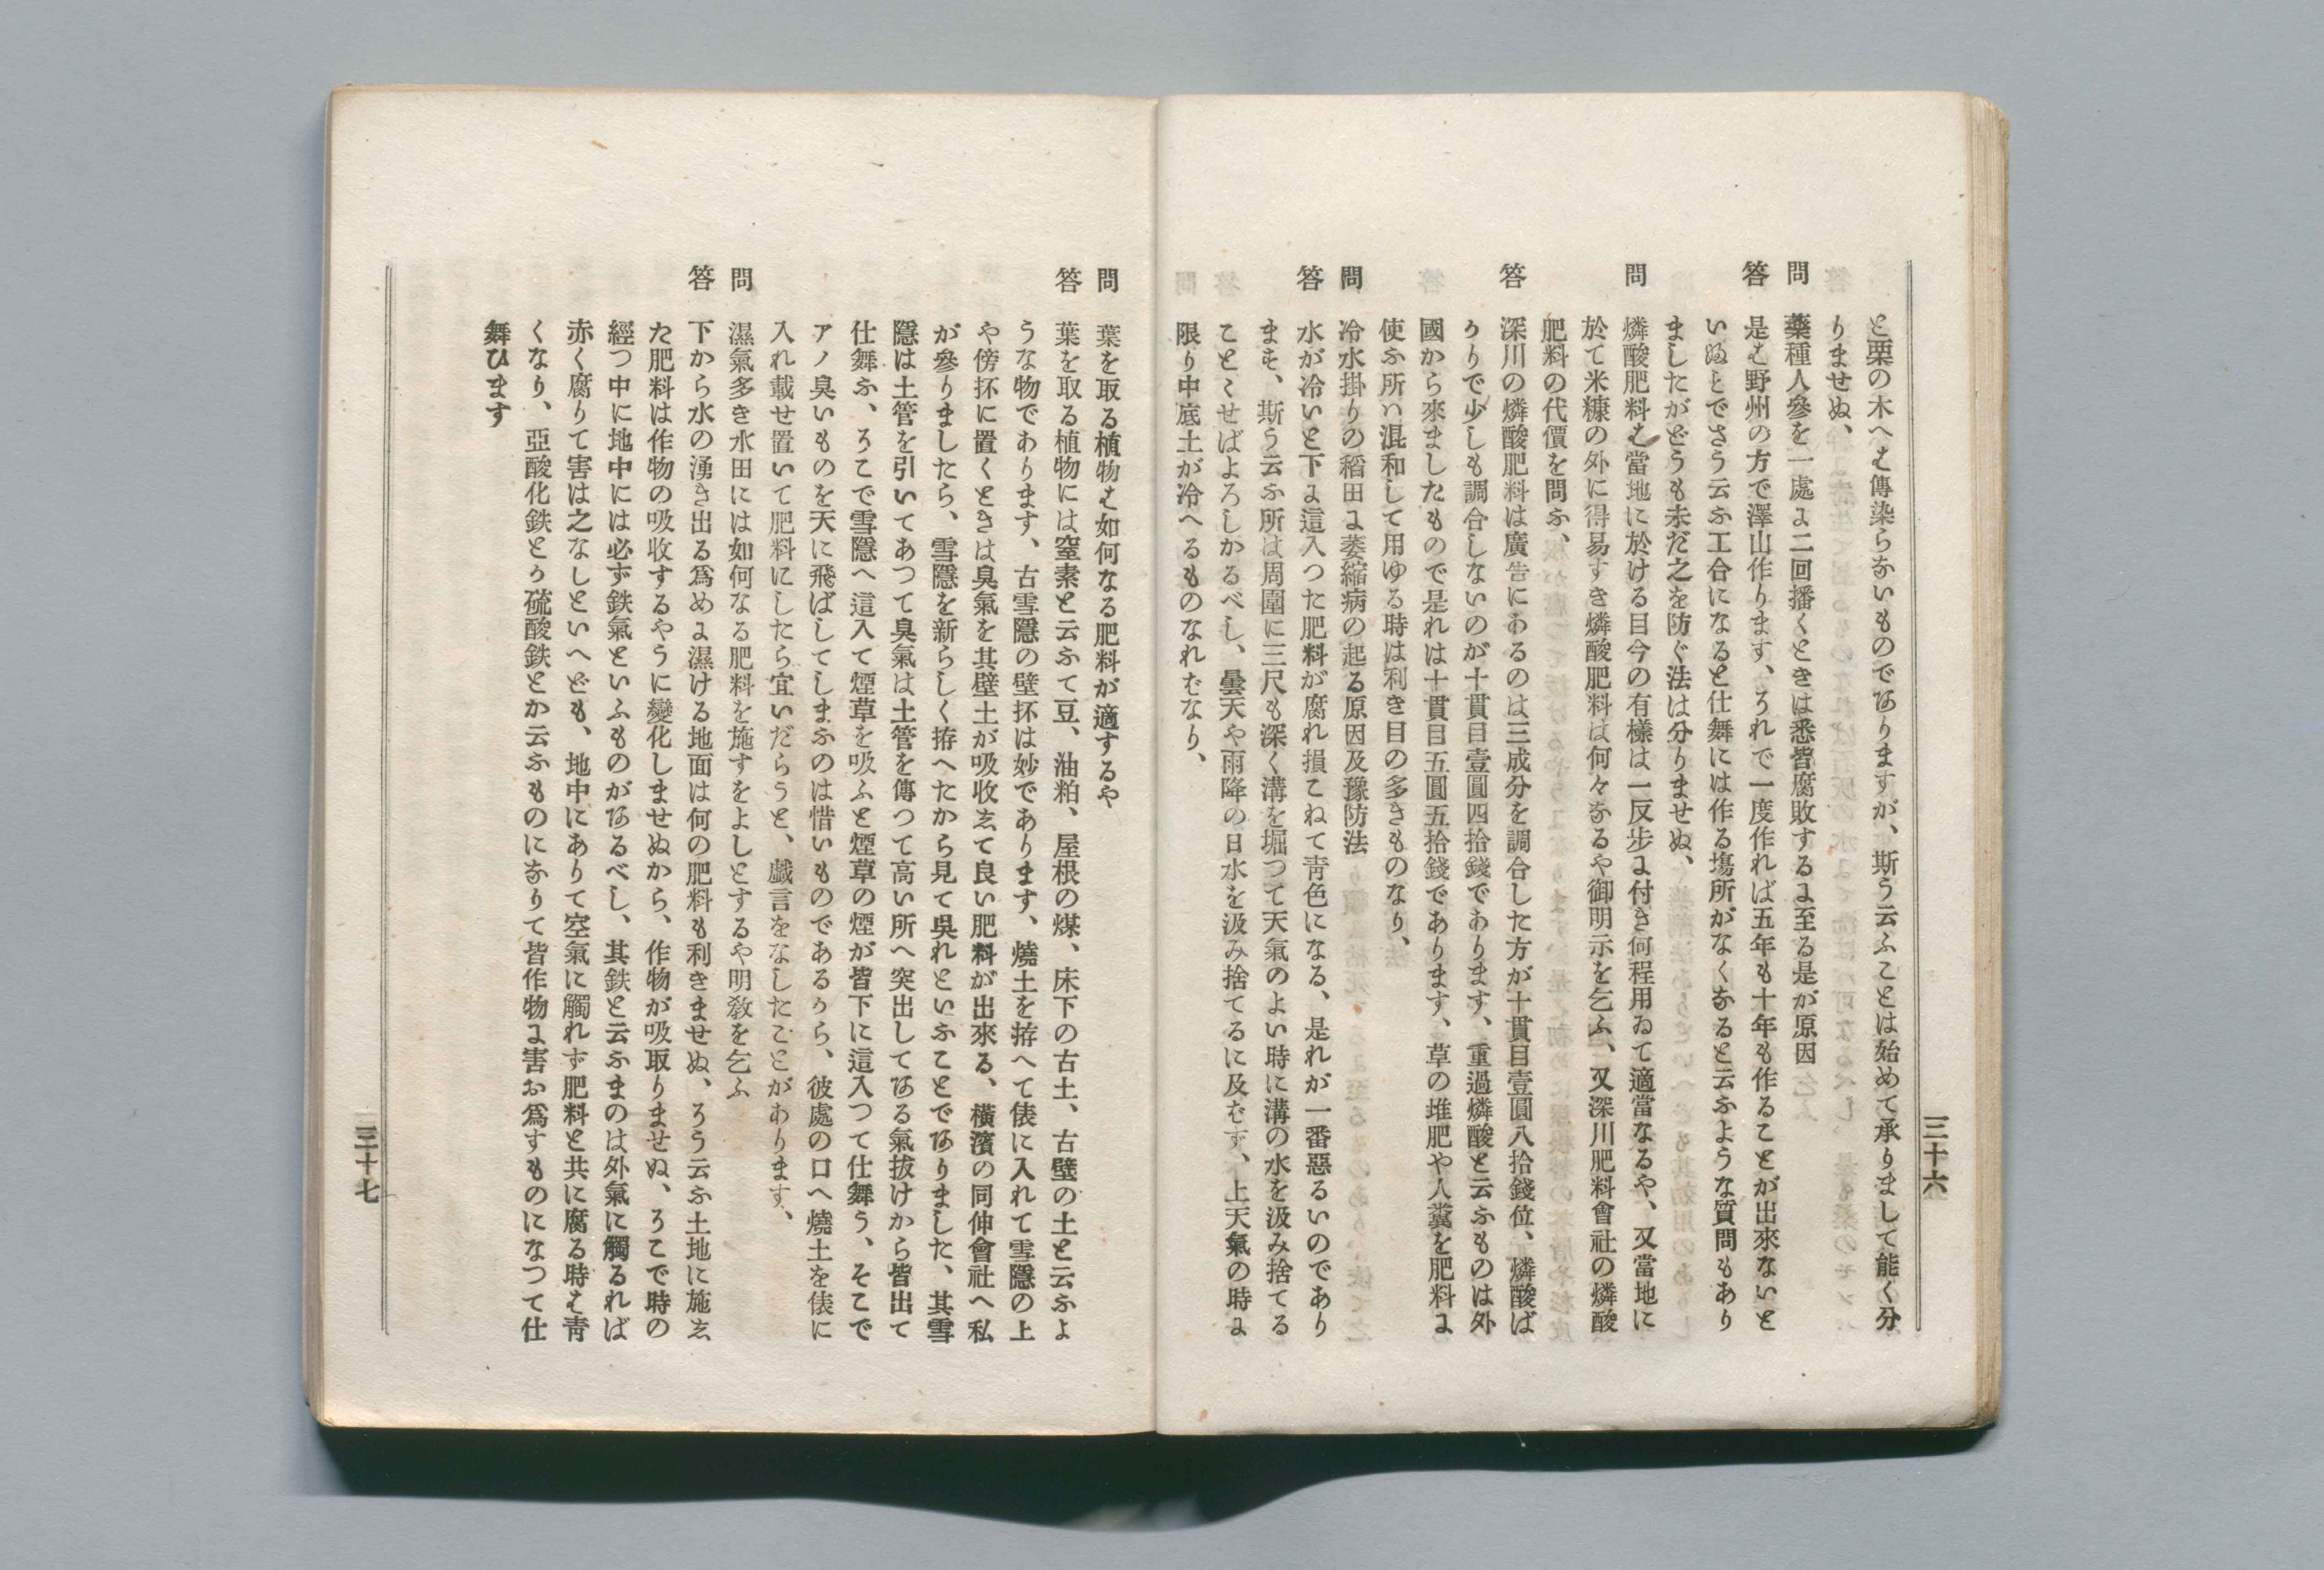 三十六
と栗の木へは傳染らないものでありますが、斯う云ふことは始めて承りまして能く分
りませぬ、
問 藥種人參を一處に二回播くときは悉皆腐敗するに至る是が原因
答 是は野州の方で澤山作ります、それで一度作れば五年も十年も作ることが出來ないと
いぬとでさう云ふ工合になると仕舞には作る塲所がなくなると云ふような質問もあり
ましたがどうも未だ之を防ぐ法は分りませぬ、
問 燐酸肥料は當地に於ける目今の有樣は一反步に付き何程用ゐて適當なるや、又當地に
於て米糠の外に得易すき燐酸肥料は何々なるや御明示を乞ふ、又深川肥料會社の燐酸
肥料の代價を問ふ、
答 深川の燐酸肥料は廣告にあるのは三成分を調合した方が十貫目壹圓八拾錢位、燐酸ば
かりで少しも調合しないのが十貫目壹圓四拾錢であります、重過燐酸と云ふものは外
國から來ましたもので是れは十貫目五圓五拾錢であります、草の堆肥や人糞を肥料に
使ふ所ハ混和して用ゆる時は利き目の多きものなり、
問 冷水掛りの稻田に萎縮病の起る原因及豫防法
答 水が冷いと下に這入つた肥料が腐れ損こねて靑色になる、是れが一番惡るいのであり
ます、斯う云ふ所は周圍に三尺も深く溝を堀つて天氣のよい時に溝の水を汲み捨てる
ことくせばよろしかるべし、曇天や雨降の日水を汲み捨てるに及ばず、上天氣の時に
限り中底土が冷へるものなればなり、
問 葉を取る植物は如何なる肥料が適するや
答 葉を取る植物には窒素と云ふて豆、油粕、屋根の煤、床下の古土、古壁の土と云ふよ
うな物であります、古雪隱の壁抔は妙であります、燒土を拵へて俵に入れて雪隱の上
や傍抔に置くときは臭氣を其壁土が吸收して良い肥料が出來る、橫濱の同伸會社へ私
が參りましたら、雪隱を新らしく拵へたから見て吳れといふことでありました、其雪
隱は土管を引いてあつて臭氣は土管を傳つて高い所へ突出してある氣拔けから皆出て
仕舞ふ、そこで雪隱へ這入て煙草を吸ふと煙草の煙が皆下に這入つて仕舞う、そこで
アノ臭いものを天に飛ばしてしまふのは惜いものであるから、彼處の口へ燒土を俵に
入れ載せ置いて肥料にしたら宜いだらうと、戲言をなしたことがあります、
問 濕氣多き水田には如何なる肥料を施すをよしとするや明敎を乞ふ
答 下から水の湧き出る爲めに濕ける地面は何の肥料も利きませぬ、そう云ふ土地に施し
た肥料は作物の吸收するやうに變化しませぬから、作物が吸取りませぬ、そこで時の
經つ中に地中には必ず鉄氣といふものがあるべし、其鉄と云ふまのは外氣に觸るれば
赤く腐りて害は之なしといへども、地中にありて空氣に觸れず肥料と共に腐る時は靑
くなり、亞酸化鉄とか硫酸鉄とか云ふものになりて皆作物に害お爲すものになつて仕
舞ひます
三十七